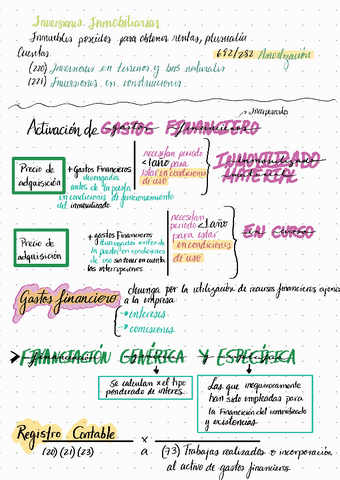 Inversiones Inmobiliarias
Inmuebles poseídos para obtener rentas, plusvalía
Cuentas. 682/282 Amortización
(220) Inversiones en terrenos y bns naturales
(221) Inversiones en construcciones.
Incorporado
Activación de GASTOS FINANCIERO
Precio de adquisición
+ Gastos Financieros
devengados
antes de la puesta
en condiciones de funcionamiento
del inmovilizado
necesitan periodo
<1año para
estar en condiciones
de uso
INMOVILIZADO
MATERIAL
Precio de adquisición
+ gastos Financieros
devengados antes de
la puesta en condiciones
de uso sin tener en cuenta
las interrupciones.
necesitan
periodo <1año
para estar
en condiciones
de uso
EN CURSO
Gastos financiero
devenga por la utilización de recursos financieros ajenos
a la empresa
→intereses
→comisiones
> FINANCIACIÓN GENÉRICA Y ESPECÍFICA
Se calculan x el tipo
ponderado de interés.
Las que inequívocamente
han sido empleadas para
la financición del inmovilizado
y existencias
Registro Contable
(20) (21) (23)
x
a
(73) Trabajos realizados o incorporación
al activo de gastos financieros